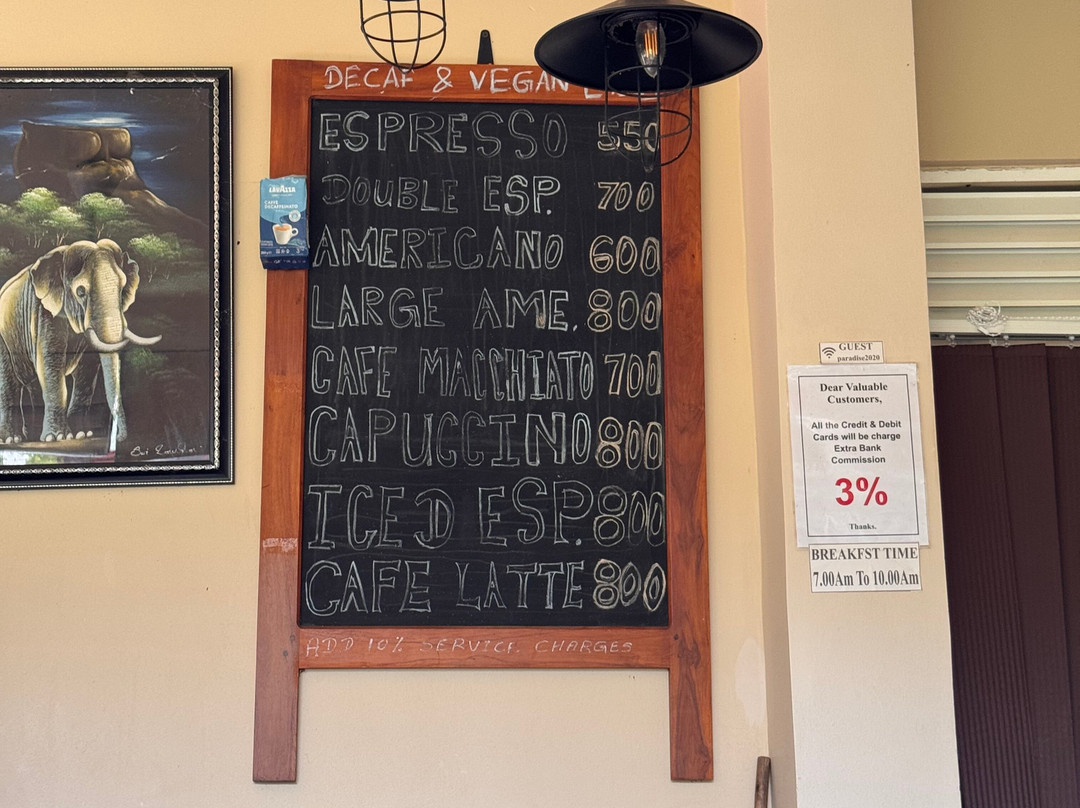 DECAF & VEGAN
ESPRESSO 550
DOUBLE ESP. 700
AMERICANO 600
LARGE AME. 800
CAFE MACCHIATO 700
CAPUCCINO 800
ICED ESP. 800
CAFE LATTE 800
ADD 10% SERVICE CHARGES
LAVAZZA
GUEST
paradise2020
Dear Valuable
Customers,
All the Credit & Debit
Cards will be charge
Extra Bank
Commission
3%
Thanks.
BREAKFST TIME
7.00Am To 10.00Am